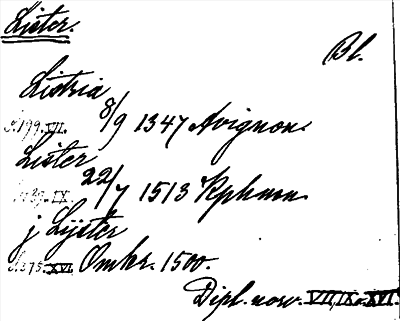 Lister.
Bl.
Listria
S. 199. VII. 8/9 1347 Avignon.
Lister
S. 39. IX. 22/7 1513 Kphmn.
j Lyster
S. 375. XVI. Omkr. 1500.
Dipl. norv. VII, IX. XVI.